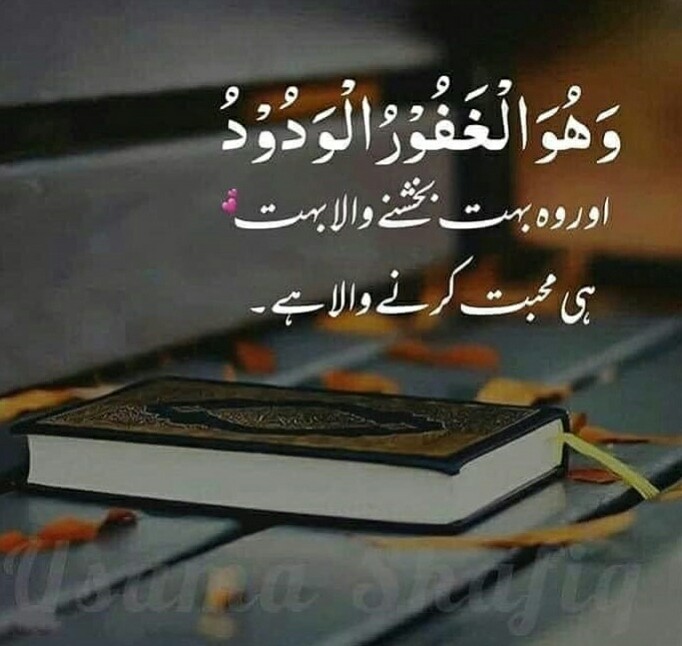 وَهُوَ الْغَفُوْرُ الْوَدُوْدُ
اور وہ بہت بخشنے والا بہت
ہی محبت کرنے والا ہے۔
Usama Shafiq